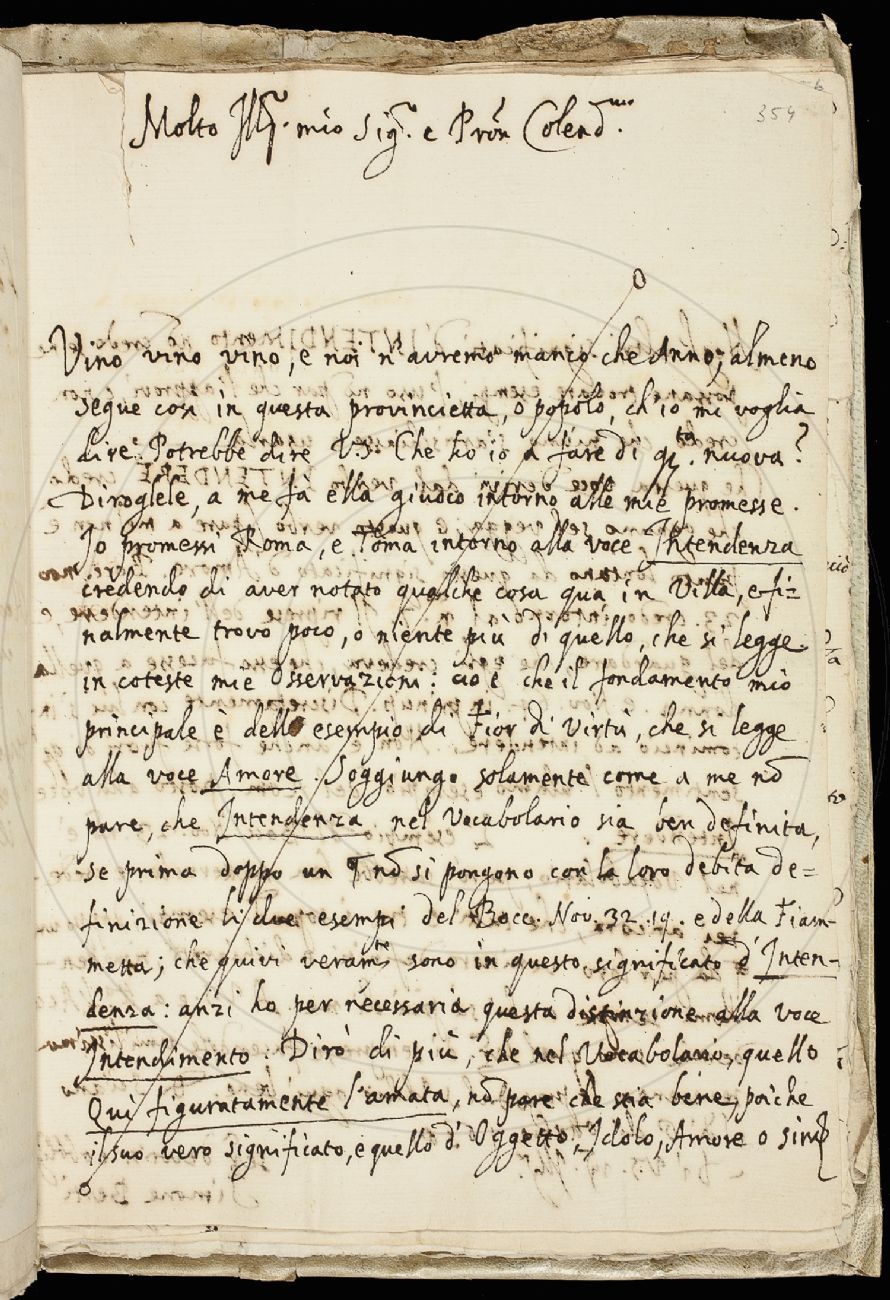 354
Molto Ill.re mio Sig.r e Prōn Colend.mo
Vino vino vino, e noi n'avremo manco che Anno; almeno
segue così in questa provincietta, o popolo, ch'io mi voglia
dire. Potrebbe dire V.S. Che ho io a fare di q.ta nuova?
Diroglele, a me fa ella giuoco intorno alle mie promesse.
Io promessi Roma, e Toma intorno alla voce Intendenza
credendo di aver notato qualche cosa quà in Villa, e fi=
nalmente trovo poco, o niente più di quello, che si legge
in coteste mie Osservazioni: ciò è che il fondamento mio
principale è dello esempio di Fior di Virtù, che si legge
alla voce Amore. Soggiungo solamente come a me nō
pare, che Intendenza nel Vocabolario sia ben definita,
se prima doppo un § nō si pongono con la loro debita de=
finizione li due esempi del Bocc. Nov. 32. 19. e della Fiam-
metta; che quivi veram.te sono in questo significato d'Inten-
denza: anzi ho per necessaria questa distinzione alla voce
Intendimento. Dirò di più, che nel Vocabolario, quello
Qui figuratamente l'amata, nō pare che stia bene, poiche
il suo vero significato, è quello d'Oggetto, Idolo, Amore o